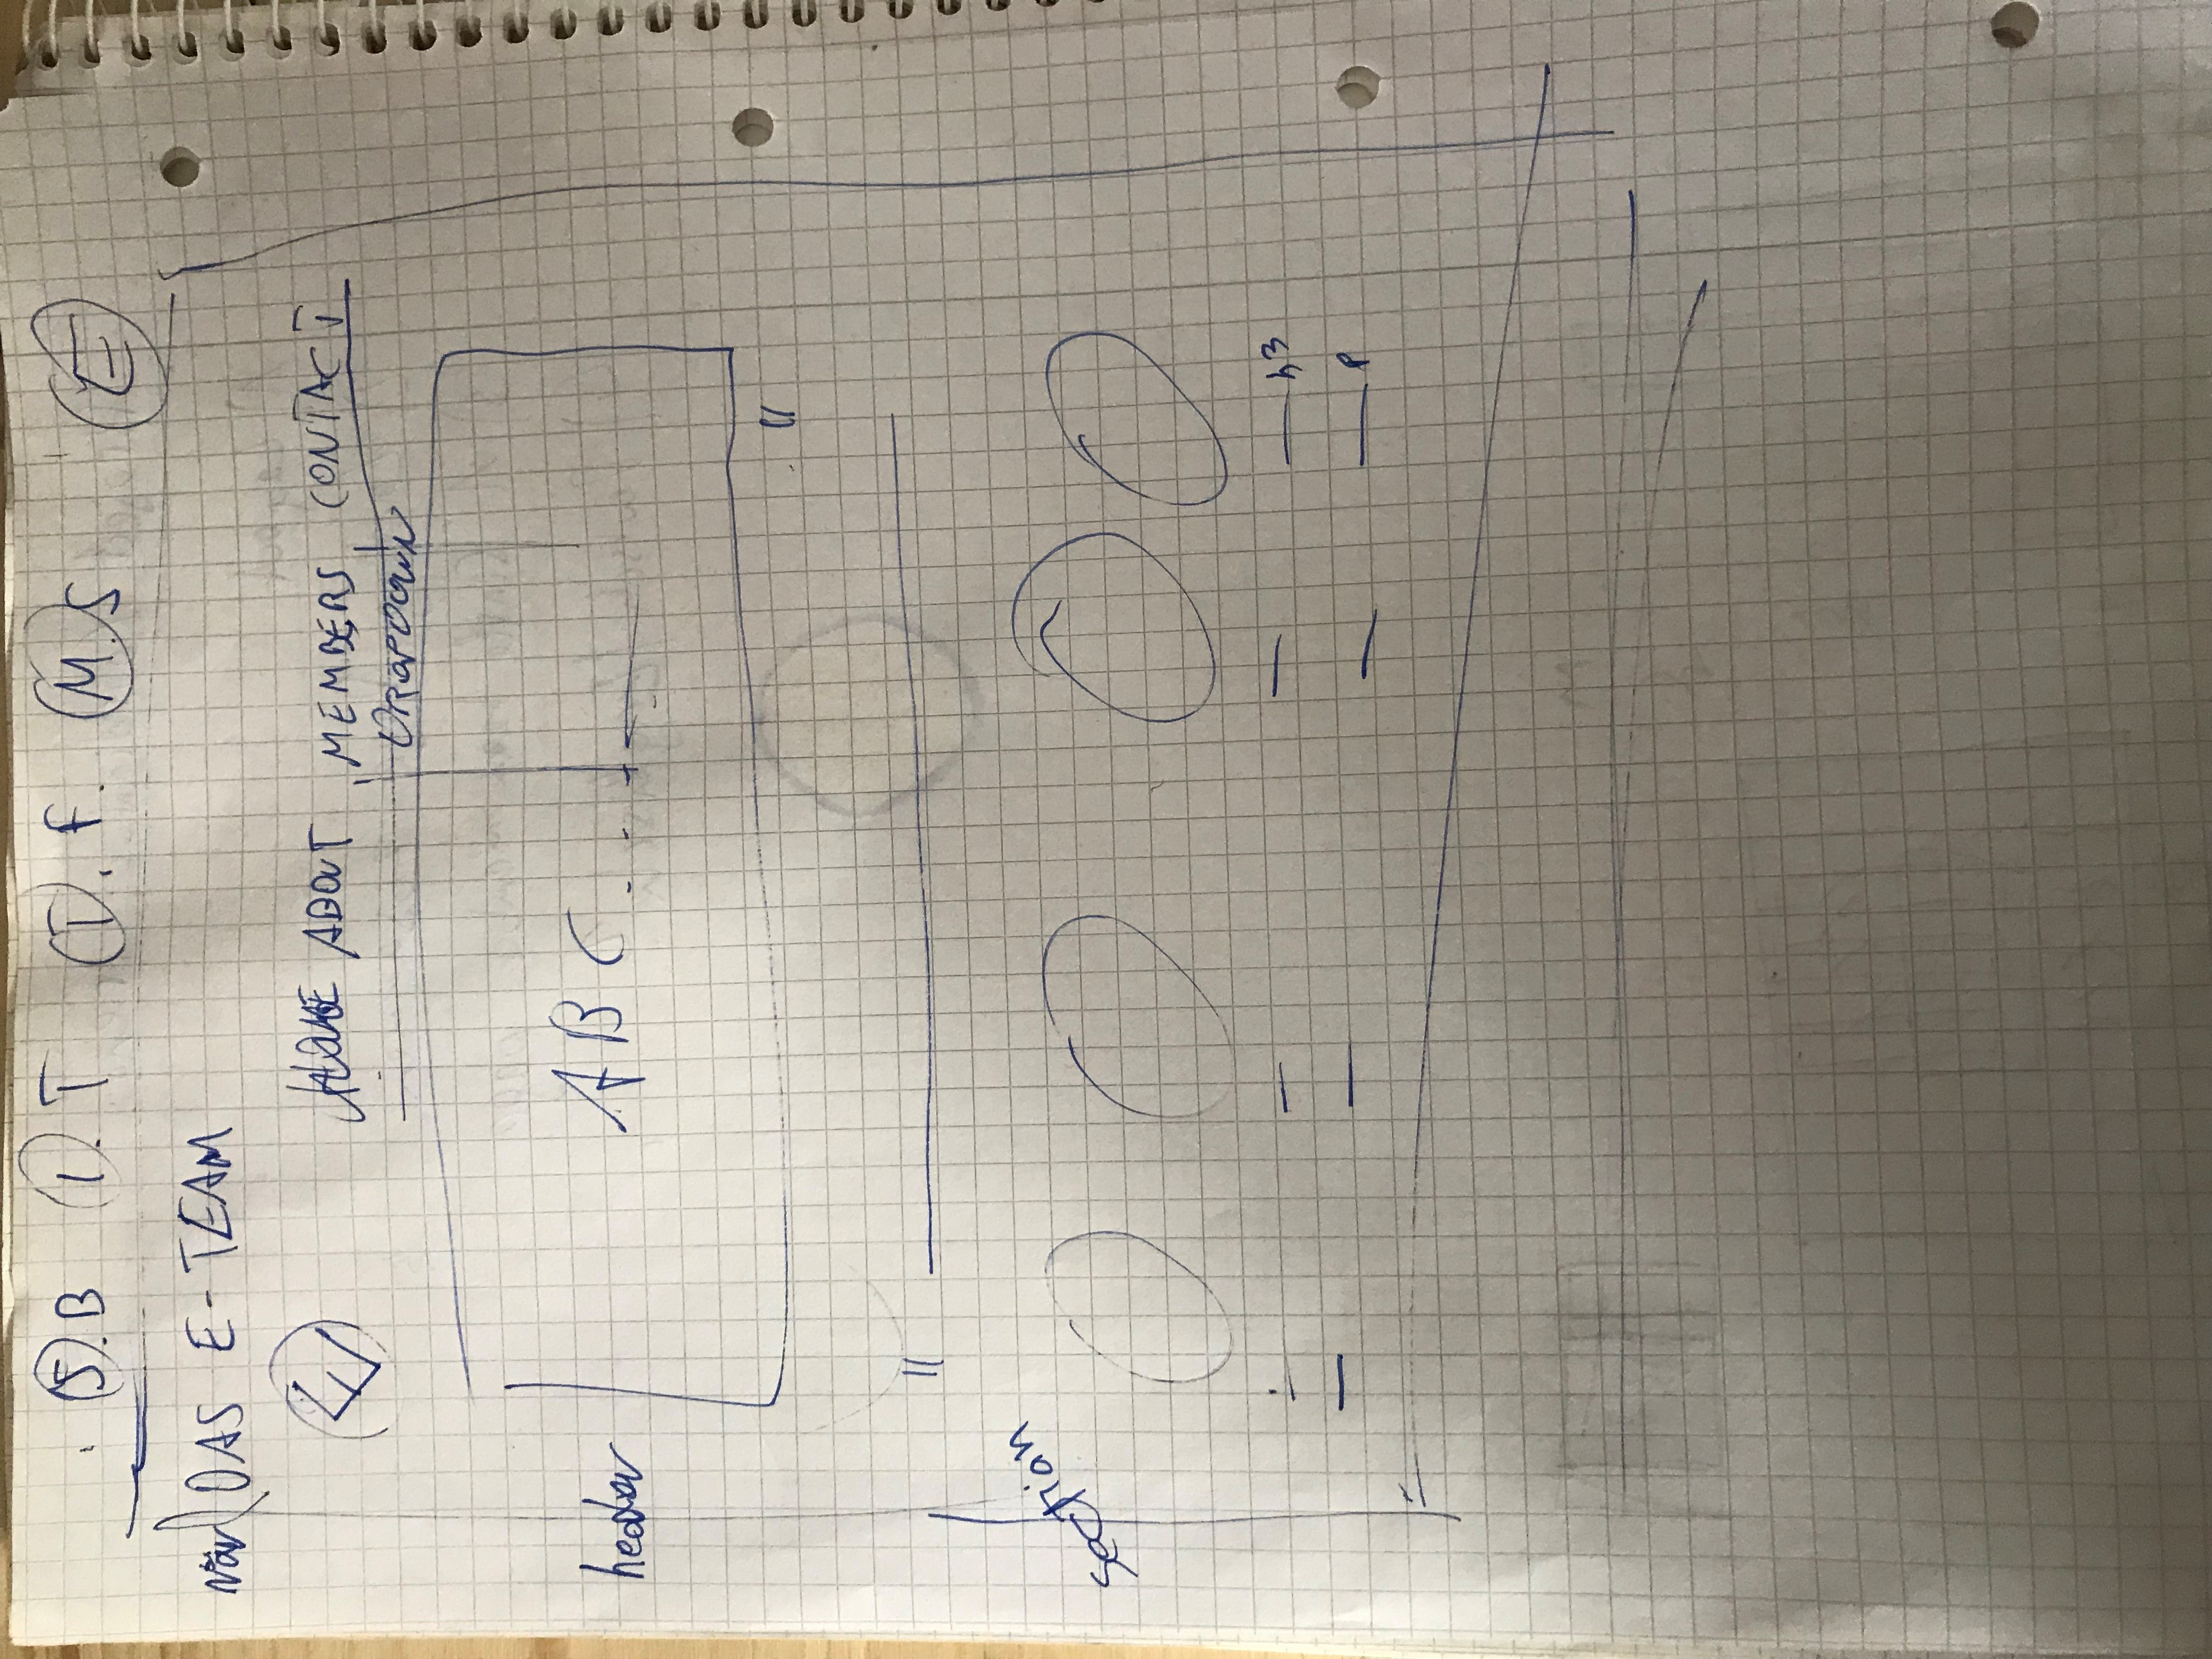 S.B I.T T.f. M.S E
nav DAS E-TEAM
HOME ABOUT MEMBERS CONTACT
DROPDOWN
header A B C
section
h3
p